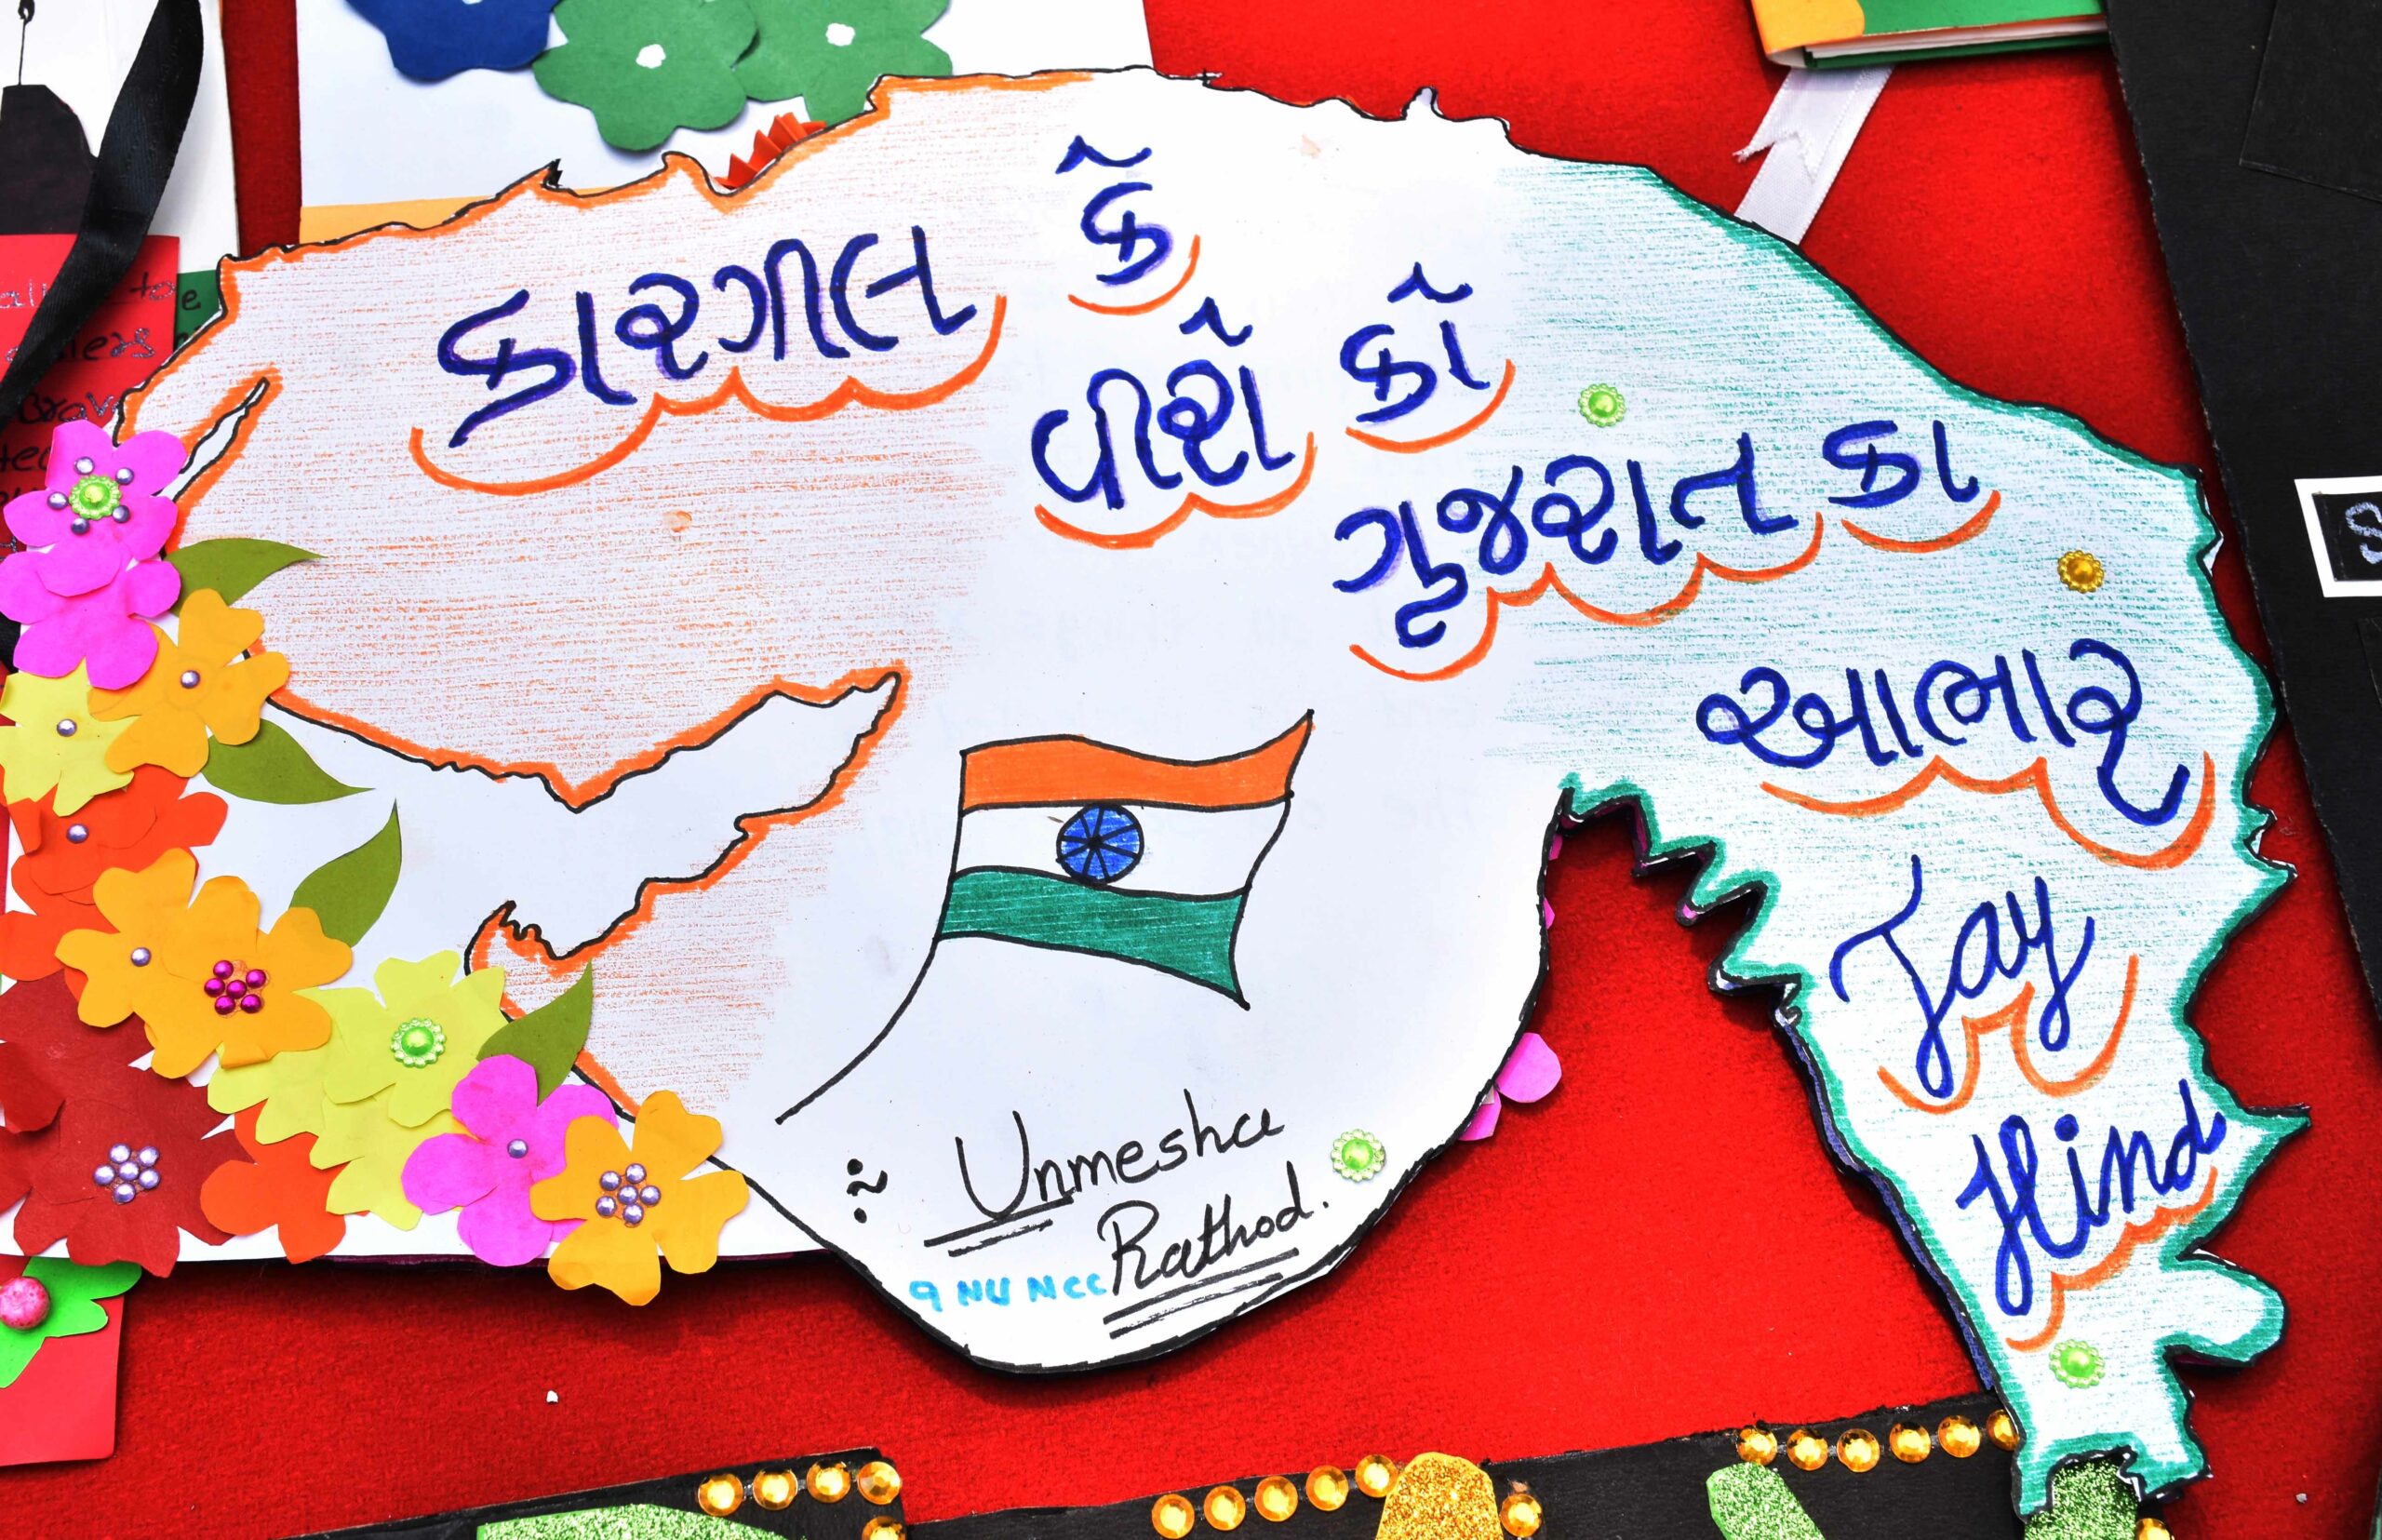 કારગીલ કે
વીરો કો
ગુજરાત કા
આભાર
Jay
Hind
~ Unmesha
Rathod.
9 NU NCC